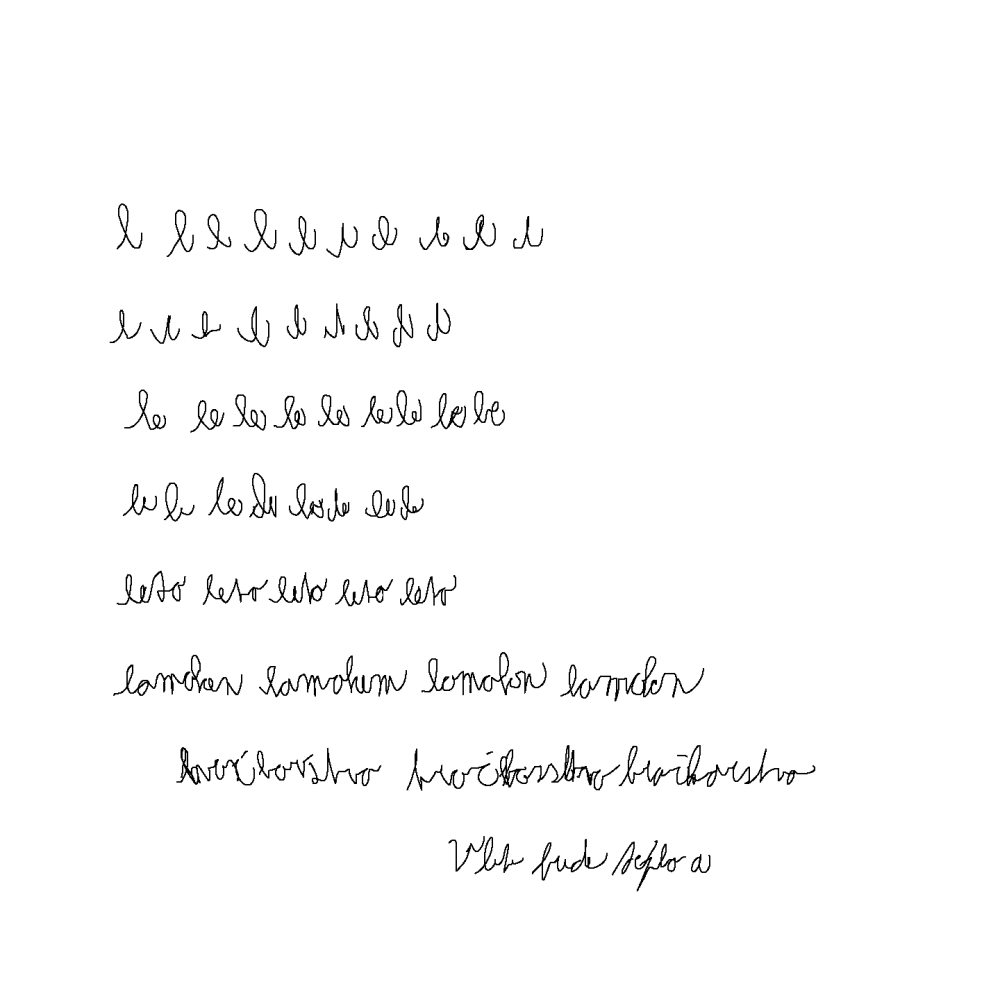 l l l l l l l l l l
l l l l l l l l l
le le le le le le le le le
le le le le le le le le
leto leto leto leto leto
lamoken lamokem lamoken lamoken
hračkárstvo hračkárstvo hračkárstvo
V lete bude teplo a